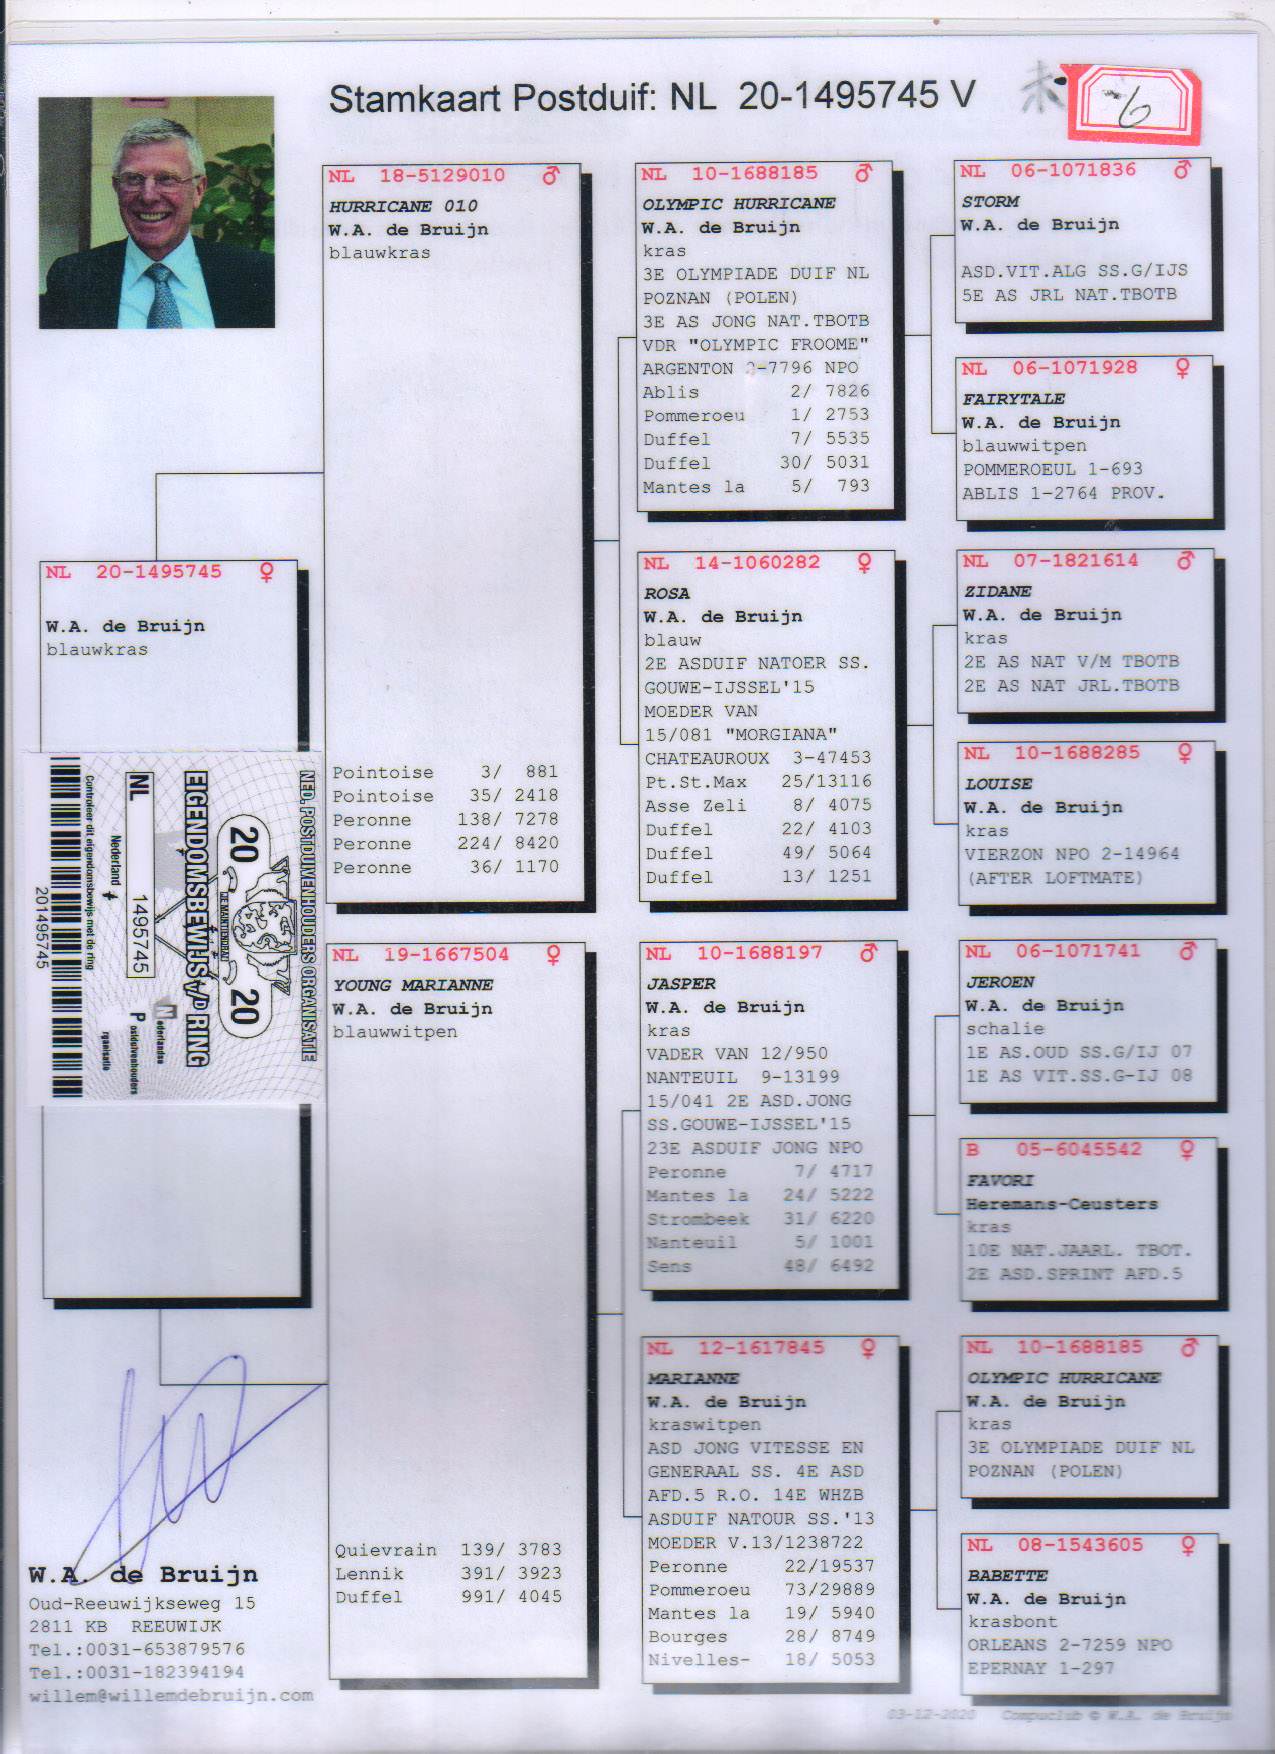 Stamkaart Postduif: NL 20-1495745 V
未
6
NL 20-1495745 ♀
W.A. de Bruijn
blauwkras
NED. POSTDUIVENHOUDERS ORGANISATIE
EIGENDOMSBEWIJS V/D RING
20 20
NL 1495745
Nederland
Nederlandse
Postduivenhouders
Organisatie
Controleer dit eigendomsbewijs met de ring
201495745
W.A. de Bruijn
Oud-Reeuwijkseweg 15
2811 KB REEUWIJK
Tel.:0031-653879576
Tel.:0031-182394194
willem@willemdebruijn.com
NL 18-5129010 ♂
HURRICANE 010
W.A. de Bruijn
blauwkras
Pointoise 3/ 881
Pointoise 35/ 2418
Peronne 138/ 7278
Peronne 224/ 8420
Peronne 36/ 1170
NL 19-1667504 ♀
YOUNG MARIANNE
W.A. de Bruijn
blauwwitpen
Quievrain 139/ 3783
Lennik 391/ 3923
Duffel 991/ 4045
NL 10-1688185 ♂
OLYMPIC HURRICANE
W.A. de Bruijn
kras
3E OLYMPIADE DUIF NL
POZNAN (POLEN)
3E AS JONG NAT.TBOTB
VDR "OLYMPIC FROOME"
ARGENTON 2-7796 NPO
Ablis 2/ 7826
Pommeroeu 1/ 2753
Duffel 7/ 5535
Duffel 30/ 5031
Mantes la 5/ 793
NL 14-1060282 ♀
ROSA
W.A. de Bruijn
blauw
2E ASDUIF NATOER SS.
GOUWE-IJSSEL'15
MOEDER VAN
15/081 "MORGIANA"
CHATEAUROUX 3-47453
Pt.St.Max 25/13116
Asse Zeli 8/ 4075
Duffel 22/ 4103
Duffel 49/ 5064
Duffel 13/ 1251
NL 10-1688197 ♂
JASPER
W.A. de Bruijn
kras
VADER VAN 12/950
NANTEUIL 9-13199
15/041 2E ASD.JONG
SS.GOUWE-IJSSEL'15
23E ASDUIF JONG NPO
Peronne 7/ 4717
Mantes la 24/ 5222
Strombeek 31/ 6220
Nanteuil 5/ 1001
Sens 48/ 6492
NL 12-1617845 ♀
MARIANNE
W.A. de Bruijn
kraswitpen
ASD JONG VITESSE EN
GENERAAL SS. 4E ASD
AFD.5 R.O. 14E WHZB
ASDUIF NATOUR SS.'13
MOEDER V.13/1238722
Peronne 22/19537
Pommeroeu 73/29889
Mantes la 19/ 5940
Bourges 28/ 8749
Nivelles- 18/ 5053
NL 06-1071836 ♂
STORM
W.A. de Bruijn
ASD.VIT.ALG SS.G/IJS
5E AS JRL NAT.TBOTB
NL 06-1071928 ♀
FAIRYTALE
W.A. de Bruijn
blauwwitpen
POMMEROEUL 1-693
ABLIS 1-2764 PROV.
NL 07-1821614 ♂
ZIDANE
W.A. de Bruijn
kras
2E AS NAT V/M TBOTB
2E AS NAT JRL.TBOTB
NL 10-1688285 ♀
LOUISE
W.A. de Bruijn
kras
VIERZON NPO 2-14964
(AFTER LOFTMATE)
NL 06-1071741 ♂
JEROEN
W.A. de Bruijn
schalie
1E AS.OUD SS.G/IJ 07
1E AS VIT.SS.G-IJ 08
B 05-6045542 ♀
FAVORI
Heremans-Ceusters
kras
10E NAT.JAARL. TBOT.
2E ASD.SPRINT AFD.5
NL 10-1688185 ♂
OLYMPIC HURRICANE
W.A. de Bruijn
kras
3E OLYMPIADE DUIF NL
POZNAN (POLEN)
NL 08-1543605 ♀
BABETTE
W.A. de Bruijn
krasbont
ORLEANS 2-7259 NPO
EPERNAY 1-297
03-12-2020 Compuclub © W.A. de Bruijn